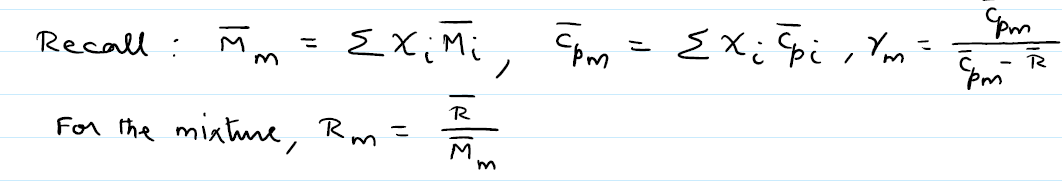 Recall : M̅m = Σ Xi M̅i, C̅pm = Σ Xi C̅pi, γm = C̅pm / (C̅pm - R̅)
For the mixture, Rm = R̅ / M̅m